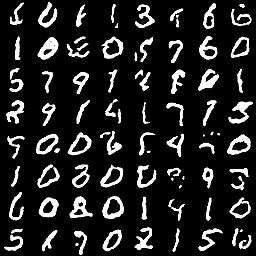 0 1 1 3 6
1 0 0 5 7 6 0
5 7 9 7 0 1
2 9 1 4 1 7 7 5
5 0 0 5 4 0
1 0 3 0 0 9
6 0 8 0 1 4 1 0
5 1 9 0 2 1 5